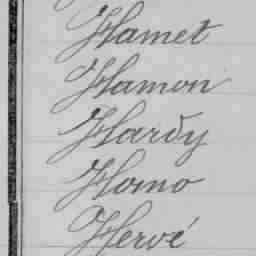 Hamet
Hamon
Hardy
Homo
Hervé